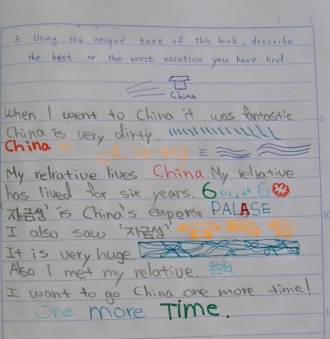 3 Using the unique text of this book, describe
the best or the worst vacation you have had.
China
When I went to China it was fantastic
China is very dirty.
China dirty
My relrative lives China. My relrative
has lived for six years. 6 6
'자금성' is China's emperor PALASE
I also saw '자금성'
It is very huge.
Also I met my relative. 친척
I want to go China one more time!
One more Time.